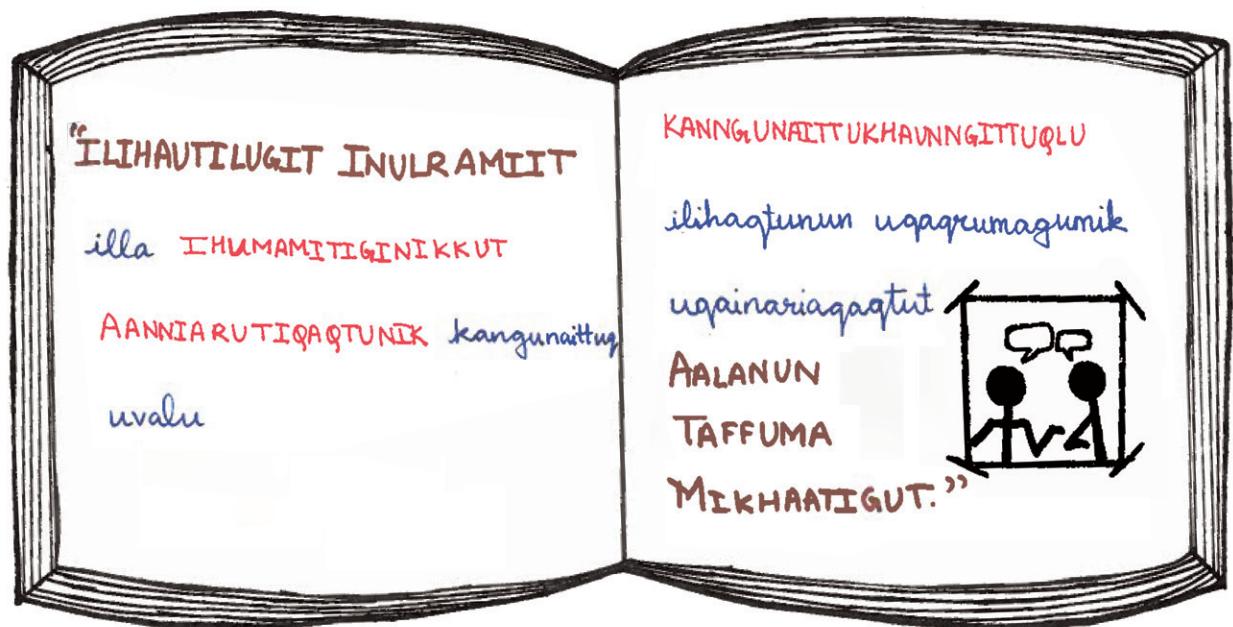 "ILIHAUTILUGIT INULRAMIIT
illa IHUMAMITIGINIKKUT
AANNIARUTIQAQTUNIK kangunaittuq
uvalu
KANNGUNAITTUKHAUNNGITTUQLU
ilihaqtunun uqaqrumagumik
uqainariaqaqtut
AALANUN
TAFFUMA
MIKHAATIGUT."